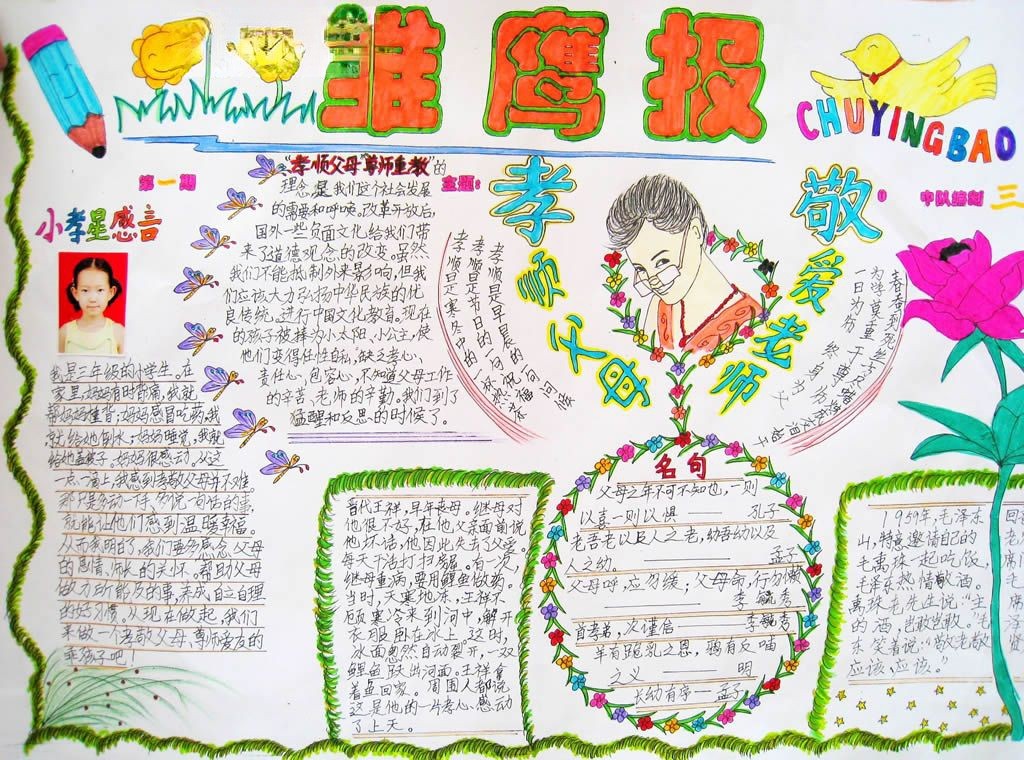 雏鹰报
CHUYINGBAO
第一期
主题:
孝顺父母
敬爱老师
中队编制 三
小孝星感言
我是三年级的小学生。在
家里,妈妈有时背痛,我就
帮妈妈捶背;妈妈感冒吃药,我
就给她倒水;妈妈睡觉,我就
给她盖被子。妈妈很感动。从这
一点一滴上,我感到孝敬父母并不难。
那只是多动一下手、多说一句话的事,
就能让他们感到温暖幸福。
从而我明白了,我们要多感念父母
的恩情、师长的关怀,帮助父母
做力所能及的事,养成自立自理
的好习惯。从现在做起,我们
来做一个孝敬父母、尊师爱友的
乖孩子吧!
"孝顺父母""尊师重教"的
理念,是我们这个社会发展
的需要和呼唤。改革开放后,
国外一些负面文化给我们带
来了道德观念的改变。虽然
我们不能抵制外来影响,但我
们应该大力弘扬中华民族的优
良传统。进行中国文化教育。现在
的孩子被择为小太阳、小公主,使
他们变得任性自私,缺乏孝心,
责任心,包容心,不知道父母工作
的辛苦、老师的辛勤。我们到了
猛醒和反思的时候了。
孝顺是早晨的一句问候
孝顺是节日的一句祝福
孝顺是寒冬中的一杯热茶
春蚕到死丝方尽
为学莫重于尊师
一日为师 终身为父
晋代王祥,早年丧母。继母对
他很不好,在他父亲面前说
他坏话,他因此失去了父爱。
每天干活打扫房。有一次,
继母重病,要用鲤鱼做药。
当时,天寒地冻,王祥不
顾寒冷来到河中,解开
衣服卧在冰上。这时,
冰面忽然自动裂开,一双
鲤鱼跃出河面。王祥拿
着鱼回家。周围人都说
这是他的一片孝心感动
了上天。
名句
父母之年不可不知也,一则
以喜一则以惧——孔子
老吾老以及人之老,幼吾幼以及
人之幼。——孟子
父母呼,应勿缓;父母命,行勿懒
——李毓秀
首孝弟,次谨信——李毓秀
羊有跪乳之恩,鸦有反哺
之义——明
长幼有序—孟子
1959年,毛泽东回
山,特意邀请自己的老
毛禹珠一起吃饭,席
毛泽东热情敬酒。
禹珠老先连说:"主席
的酒,岂敢岂敢。"毛
东笑着说:"敬老敬贤
应该、应该。"